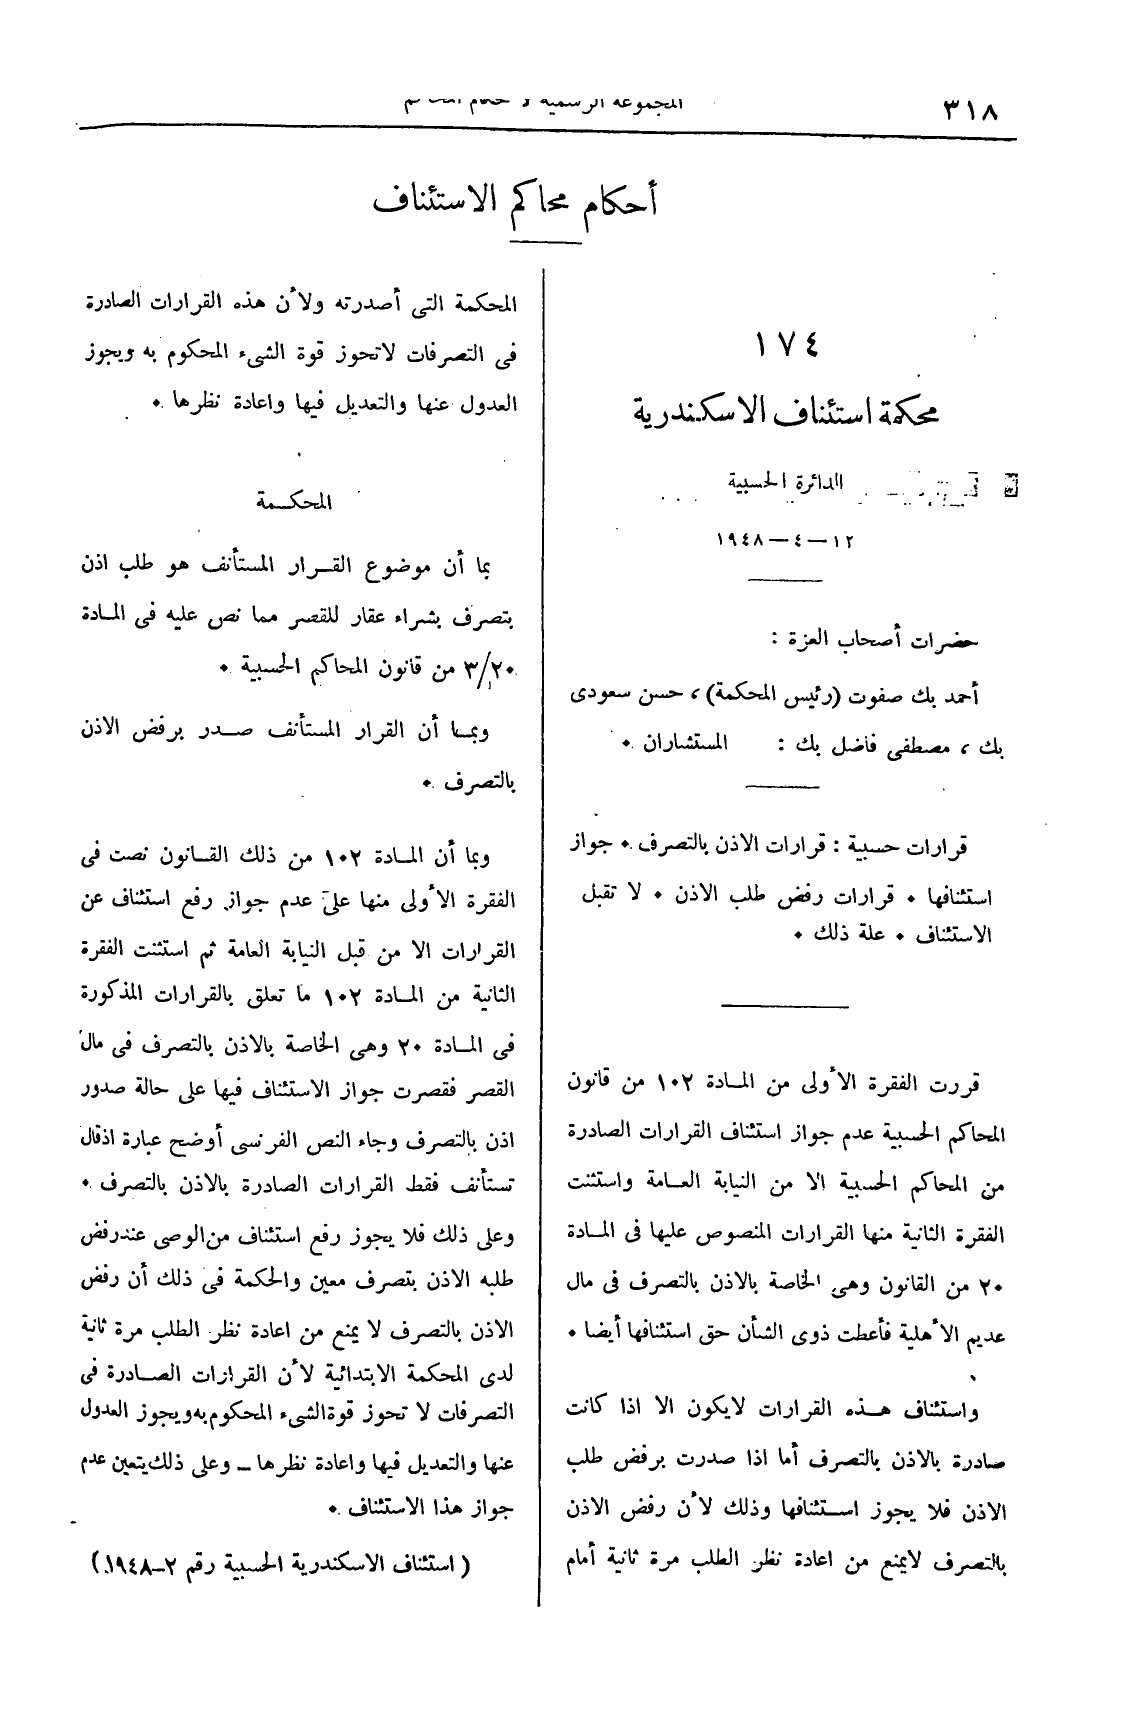 ٣١٨
المجموعة الرسمية لأحكام المحاكم
أحكام محاكم الاستئناف
١٧٤
محكمة استئناف الاسكندرية
الدائرة الحسبية
١٢ – ٤ – ١٩٤٨
حضرات أصحاب العزة :
أحمد بك صفوت (رئيس المحكمة) ، حسن سعودى
بك ، مصطفى فاضل بك : المستشاران .
قرارات حسبية : قرارات الاذن بالتصرف . جواز
استئنافها . قرارات رفض طلب الاذن . لا تقبل
الاستئناف . علة ذلك .
قررت الفقرة الأولى من المادة ١٠٢ من قانون
المحاكم الحسبية عدم جواز استئناف القرارات الصادرة
من المحاكم الحسبية الا من النيابة العامة واستثنت
الفقرة الثانية منها القرارات المنصوص عليها فى المادة
٢٠ من القانون وهى الخاصة بالاذن بالتصرف فى مال
عديم الأهلية فأعطت ذوى الشأن حق استئنافها أيضا .
واستئناف هذه القرارات لايكون الا اذا كانت
صادرة بالاذن بالتصرف أما اذا صدرت برفض طلب
الاذن فلا يجوز استئنافها وذلك لأن رفض الاذن
بالتصرف لايمنع من اعادة نظر الطلب مرة ثانية أمام
المحكمة التى أصدرته ولأن هذه القرارات الصادرة
فى التصرفات لاتحوز قوة الشىء المحكوم به ويجوز
العدول عنها والتعديل فيها واعادة نظرها .
المحكمة
بما أن موضوع القرار المستأنف هو طلب اذن
بتصرف بشراء عقار للقصر مما نص عليه فى المادة
٣/٢٠ من قانون المحاكم الحسبية .
وبما أن القرار المستأنف صدر برفض الاذن
بالتصرف .
وبما أن المادة ١٠٢ من ذلك القانون نصت فى
الفقرة الأولى منها على عدم جواز رفع استئناف عن
القرارات الا من قبل النيابة العامة ثم استثنت الفقرة
الثانية من المادة ١٠٢ ما تعلق بالقرارات المذكورة
فى المادة ٢٠ وهى الخاصة بالاذن بالتصرف فى مال
القصر فقصرت جواز الاستئناف فيها على حالة صدور
اذن بالتصرف وجاء النص الفرنسى أوضح عبارة اذقال
تستأنف فقط القرارات الصادرة بالاذن بالتصرف .
وعلى ذلك فلا يجوز رفع استئناف من الوصى عندرفض
طلبه الاذن بتصرف معين والحكمة فى ذلك أن رفض
الاذن بالتصرف لا يمنع من اعادة نظر الطلب مرة ثانية
لدى المحكمة الابتدائية لأن القرارات الصادرة فى
التصرفات لا تحوز قوة الشىء المحكوم به ويجوز العدول
عنها والتعديل فيها واعادة نظرها – وعلى ذلك يتعين عدم
جواز هذا الاستئناف .
( استئناف الاسكندرية الحسبية رقم ٢–١٩٤٨)